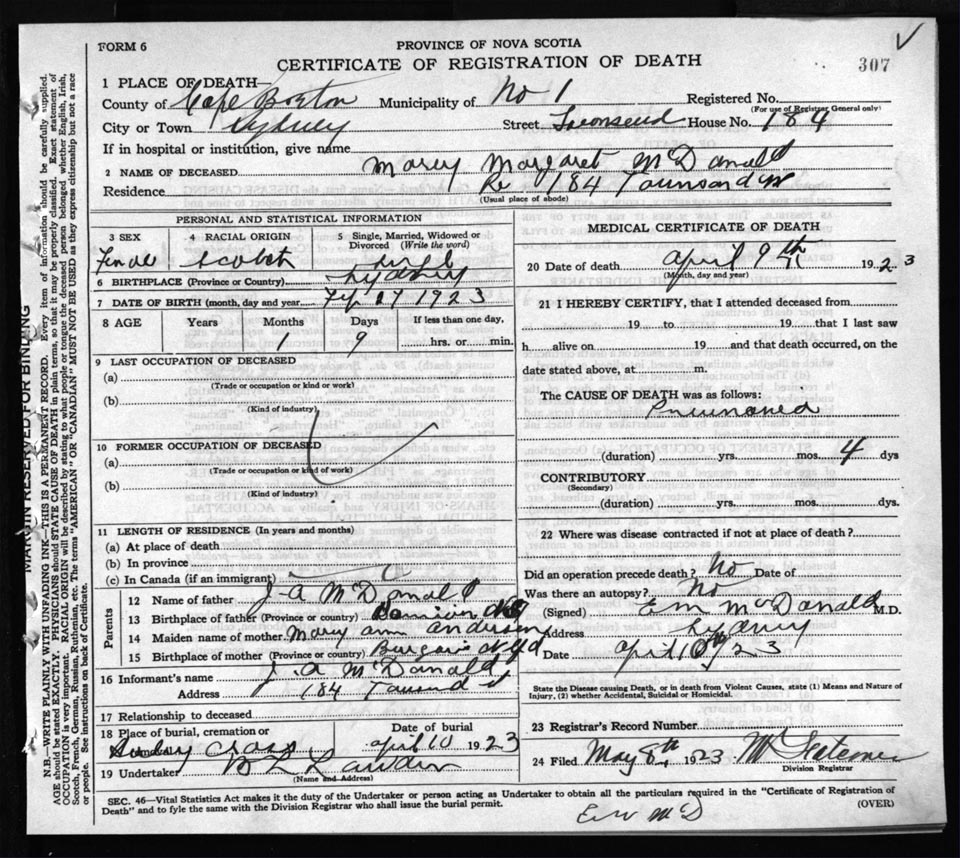 FORM 6
PROVINCE OF NOVA SCOTIA
CERTIFICATE OF REGISTRATION OF DEATH
307
1 PLACE OF DEATH—
County of Cape Breton Municipality of No 1 Registered No.
(For use of Registrar General only)
City or Town Sydney Street Townsend House No. 184
If in hospital or institution, give name
2 NAME OF DECEASED Mary Margaret McDonald
Residence Re 184 Townsend St
(Usual place of abode)
PERSONAL AND STATISTICAL INFORMATION
3 SEX 4 RACIAL ORIGIN 5 Single, Married, Widowed or Divorced (Write the word)
Female Scotch Single
6 BIRTHPLACE (Province or Country) Sydney
7 DATE OF BIRTH (month, day and year) 1923
8 AGE Years Months Days If less than one day,
9 hrs. or min.
9 LAST OCCUPATION OF DECEASED
(a)
(Trade or occupation or kind or work)
(b)
(Kind of industry)
10 FORMER OCCUPATION OF DECEASED
(a)
(Trade or occupation or kind of work)
(b)
(Kind of industry)
11 LENGTH OF RESIDENCE (In years and months)
(a) At place of death
(b) In province
(c) In Canada (if an immigrant)
Parents
12 Name of father J A McDonald
13 Birthplace of father (Province or country)
14 Maiden name of mother Mary Ann
15 Birthplace of mother (Province or country) Nfld
16 Informant's name J. A McDonald
Address 184 Townsend St
17 Relationship to deceased
18 Place of burial, cremation or Date of burial
April 10 1923
19 Undertaker
(Name and Address)
MEDICAL CERTIFICATE OF DEATH
20 Date of death April 9th 1923
(Month, day and year)
21 I HEREBY CERTIFY, that I attended deceased from
19 to 19 that I last saw
h alive on 19 and that death occurred, on the
date stated above, at m.
The CAUSE OF DEATH was as follows:
Pneumonia
(duration) yrs. mos. 4 dys
CONTRIBUTORY
(Secondary)
(duration) yrs. mos. dys.
22 Where was disease contracted if not at place of death?
Did an operation precede death? No Date of
Was there an autopsy? No
(Signed) E M McDonald M.D.
Address Sydney
Date April 10 23
State the Disease causing Death, or in death from Violent Causes, state (1) Means and Nature of
Injury, (2) whether Accidental, Suicidal or Homicidal.
23 Registrar's Record Number
24 Filed May 8th 1923
Division Registrar
SEC. 46—Vital Statistics Act makes it the duty of the Undertaker or person acting as Undertaker to obtain all the particulars required in the "Certificate of Registration of
Death" and to fyle the same with the Division Registrar who shall issue the burial permit.
(OVER)
MARGIN RESERVED FOR BINDING
N.B.—WRITE PLAINLY WITH UNFADING INK—THIS IS A PERMANENT RECORD. Every item of information should be carefully supplied.
AGE should be stated EXACTLY. PHYSICIANS should STATE CAUSE OF DEATH in plain terms, so that it may be properly classified. Exact statement of
OCCUPATION is very important. RACIAL ORIGIN will be described by stating to what people or tongue the deceased person belonged whether English, Irish,
Scotch, French, German, Russian, Ruthenian, etc. The terms "AMERICAN" OR "CANADIAN" MUST NOT BE USED as they express citizenship but not a race
or people. See instructions on back of Certificate.